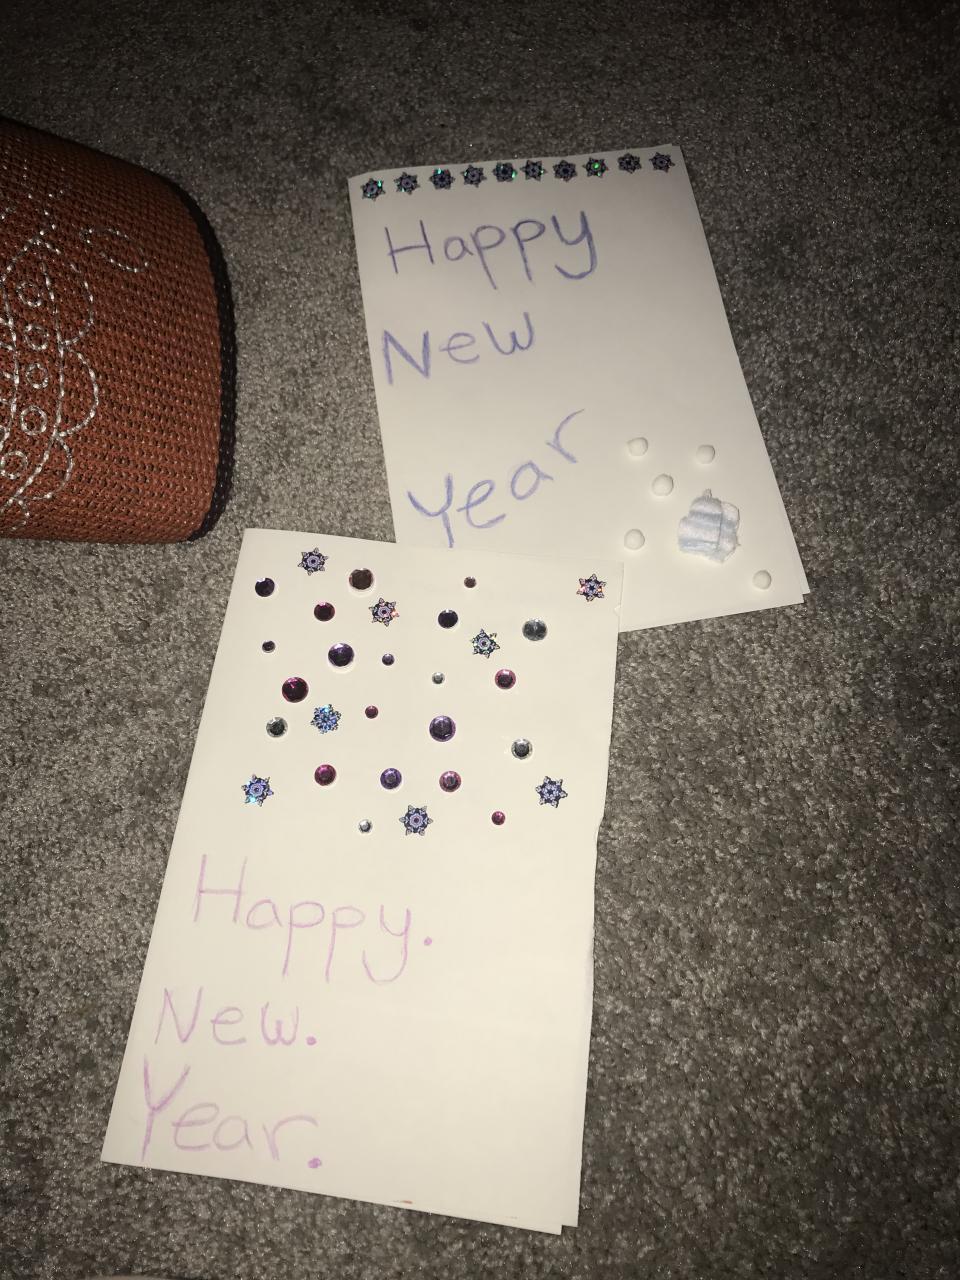 Happy
New
Year
Happy.
New.
Year.